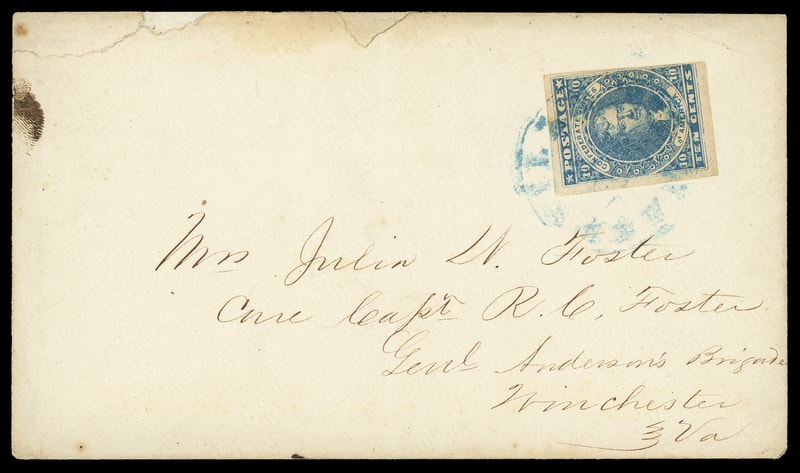 ★ POSTAGE ★
CONFEDERATE STATES
OF AMERICA
TEN CENTS
10
10
10
10
Mrs Julia W. Foster
Care Capt R. C. Foster
Genl Anderson's Brigade
Winchester
Va